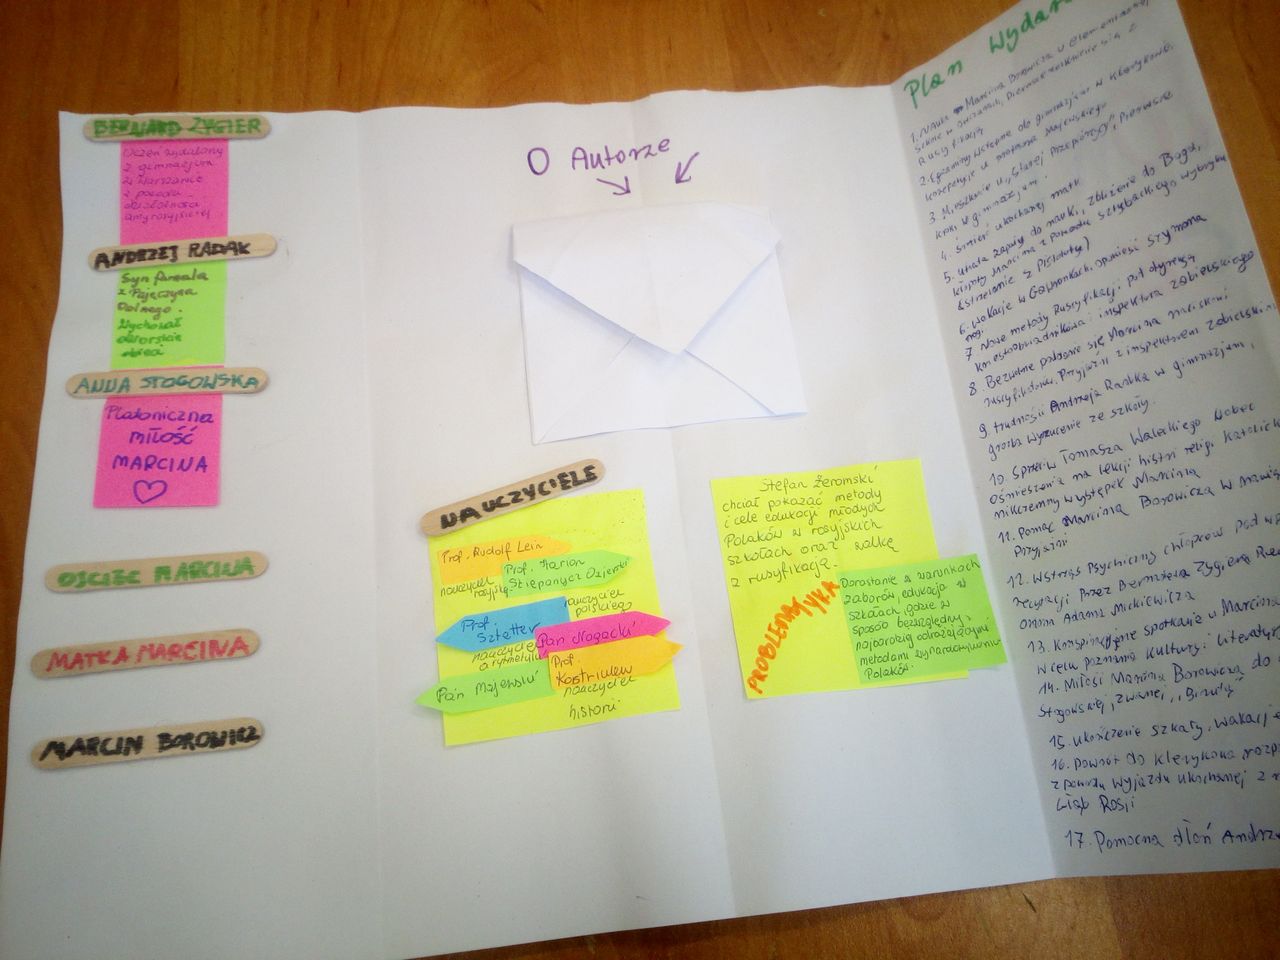 BERNARD ZYGIER
Uczeń wydalony
z gimnazjum
w Warszawie
z powodu
działalności
antyrosyjskiej
ANDRZEJ RADAK
Syn fornala
z Pajęczyna
Dolnego.
Wychował
dworskie
dzieci
ANNA STOGOWSKA
Platoniczna
miłość
MARCINA
OJCIEC MARCINA
MATKA MARCINA
MARCIN BOROWICZ
O Autorze
NAUCZYCIELE
Prof. Rudolf Leim
nauczyciel
Prof. Ilarion
Stiepanycz Ozierski
rosyjskiego
Prof.
Sztetter
nauczyciel
polskiego
Pan Nogacki
nauczyciel
arytmetyki
Prof.
Kostriulew
nauczyciel
historii
Pan Majewski
Stefan Żeromski
chciał pokazać metody
i cele edukacji młodych
Polaków w rosyjskich
szkołach oraz walkę
z rusyfikacją.
PROBLEMATYKA
Dorastanie w warunkach
zaborów, edukacja w
szkołach, gdzie w
sposób bezwzględny,
najbardziej odrażającymi
metodami wynaradawiano
Polaków.
Plan
1. Nauka Marcina Borowicza w elementarnej
szkole w Owczarach, pierwsze zetknięcie się z
Rusyfikacją
2. Egzaminy wstępne do gimnazjum w Klerykowie,
korepetycje u profesora Majewskiego
3. Mieszkanie u „Starej Przepiórzycy", pierwsze
kroki w gimnazjum.
4. Śmierć ukochanej matki
5. Utrata zapału do nauki, zbliżenie do Boga,
kłopoty Marcina z powodu sztubackiego wybryku
(strzelanie z Pistoletu)
6. Wakacje w Gawronkach, opowieść Szymona
Nogi
7. Nowe metody Rusyfikacji pod dyrekcją
Kriestoobriadnikowa i inspektora Zabielskiego
8. Bezwolne poddanie się Marcina naciskowi
rusyfikatorów. Przyjaźń z inspektorem Zabielskim
9. trudności Andrzeja Radka w gimnazjum,
groźba wyrzucenie ze szkoły.
10. Sprzeciw Tomasza Waleckiego wobec
ośmieszania na lekcji histori religi Katolickiej
nikczemny występek Marcina
11. Pomoc Marcina Borowicza w
Przyjaźni
12. Wstrząs Psychiczny chłopców Pod
recytacji Przez Bernarda Zygiera
Adama Mickiewicza
13. Konspiracyjne spotkanie u Marcina
w celu poznania kultury i literatury
14. Miłość Marcina Borowicza do
Stogowskiej, zwanej „Birutą"
15. Ukończenie szkoły, wakacje
16. Powrót do Klerykowa
z powodu wyjazdu ukochanej z
Głąb Rosji
17. Pomocna dłoń